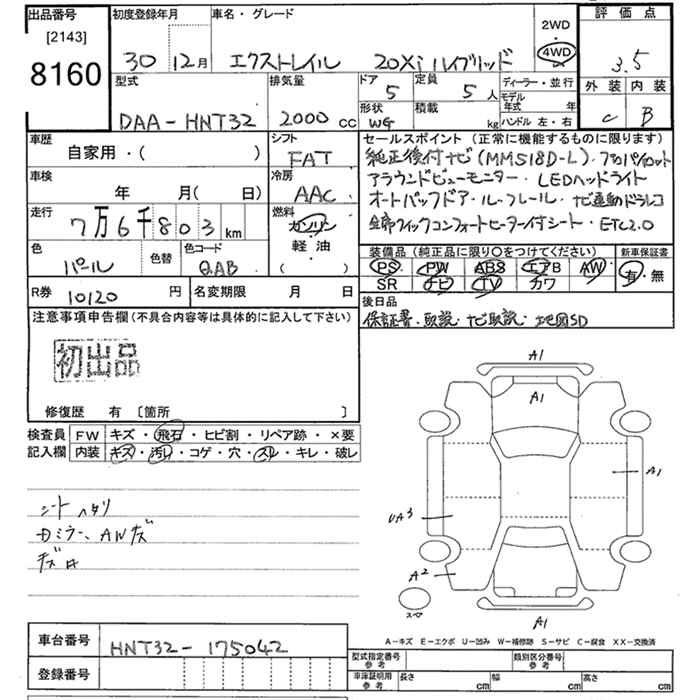 出品番号 初度登録年月 車名・グレード 2WD 評価点
[2143]
8160 30 12月 エクストレイル 20Xi ハイブリッド 4WD 3.5
型式 排気量 ドア 定員 ディーラー・並行 外装 内装
DAA-HNT32 2000 CC 5 5人 モデル年式 年 C B
形状 積載 kg ハンドル 左・右
WG
車歴 シフト セールスポイント (正常に機能するものに限ります)
自家用・( ) FAT 純正後付ナビ(MM518D-L)・プロパイロット
車検 冷房 アラウンドビューモニター・LEDヘッドライト
年 月(日) AAC オートバックドア・ルーフレール・ナビ連動ドラレコ
走行 燃料 全席クイックコンフォートヒーター付シート・ETC2.0
7万6千803km ガソリン
軽油
( )
色 色替 色コード 装備品 (純正品に限り○をつけてください) 新車保証書
パール QAB PS PW ABS エアB AW 有・無
SR ナビ TV カワ
R券 10120円 名変期限 月 日 後日品
保証書・取説・ナビ取説・地図SD
注意事項申告欄(不具合内容等は具体的に記入して下さい)
初出品
修復歴 有 [箇所 ]
検査員 FW キズ・飛石・ヒビ割・リペア跡・×要
記入欄 内装 キズ・汚レ・コゲ・穴・スレ・キレ・破レ
A1
A1
A1
UA3
A2
スペア
A1
シートヘタリ
ミラー、AWキズ
A-キズ E-エクボ U-凹み W-補修跡 S-サビ C-腐食 XX-交換済
車台番号 HNT32-175042
登録番号
型式指定番号 参考 類別区分番号 参考
車庫証明用 参考 長さ cm 幅 cm 高さ cm